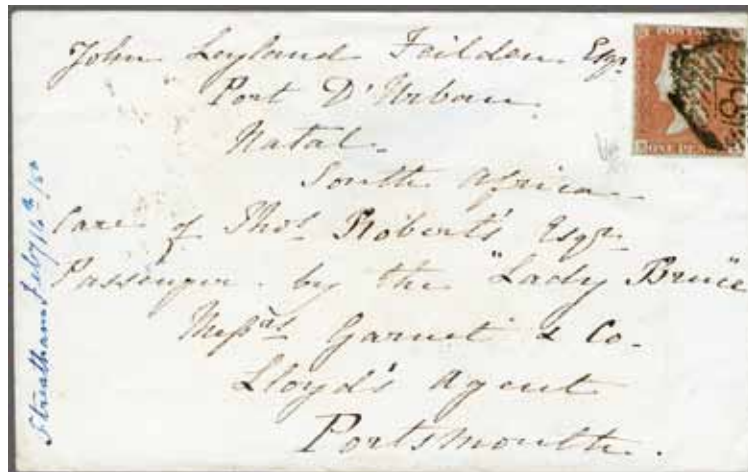 John Leyland Feilden Esqr.
Port D'Urban.
Natal.
South Africa
Care of Thos. Roberts Esqr.
Passenger. by the "Lady Bruce"
Messrs. Garnet & Co-
Lloyd's Agent
Portsmouth.
Streatham Feby 16th/50
POSTAGE
ONE PENNY